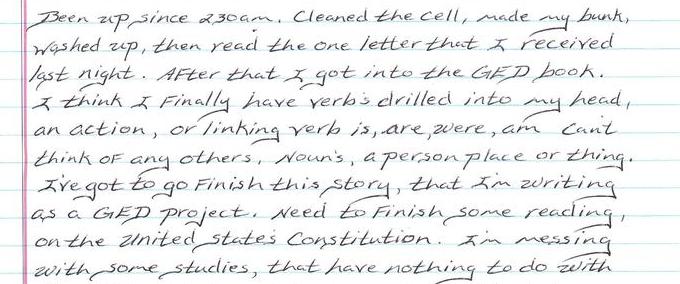 Been up since 230am. Cleaned the cell, made my bunk,
washed up, then read the one letter that I received
last night. After that I got into the GED book.
I think I Finally have verb's drilled into my head,
an action, or linking verb is, are, were, am Can't
think of any others, Noun's, a person place or thing.
I've got to go Finish this story, that I'm writing
as a GED project. Need to Finish some reading,
on the United state's Constitution. I'm messing
with some studies, that have nothing to do with